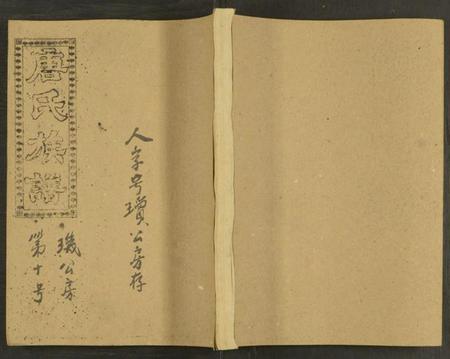 唐氏族譜
人字号瓚公房存
璣公房
第十号